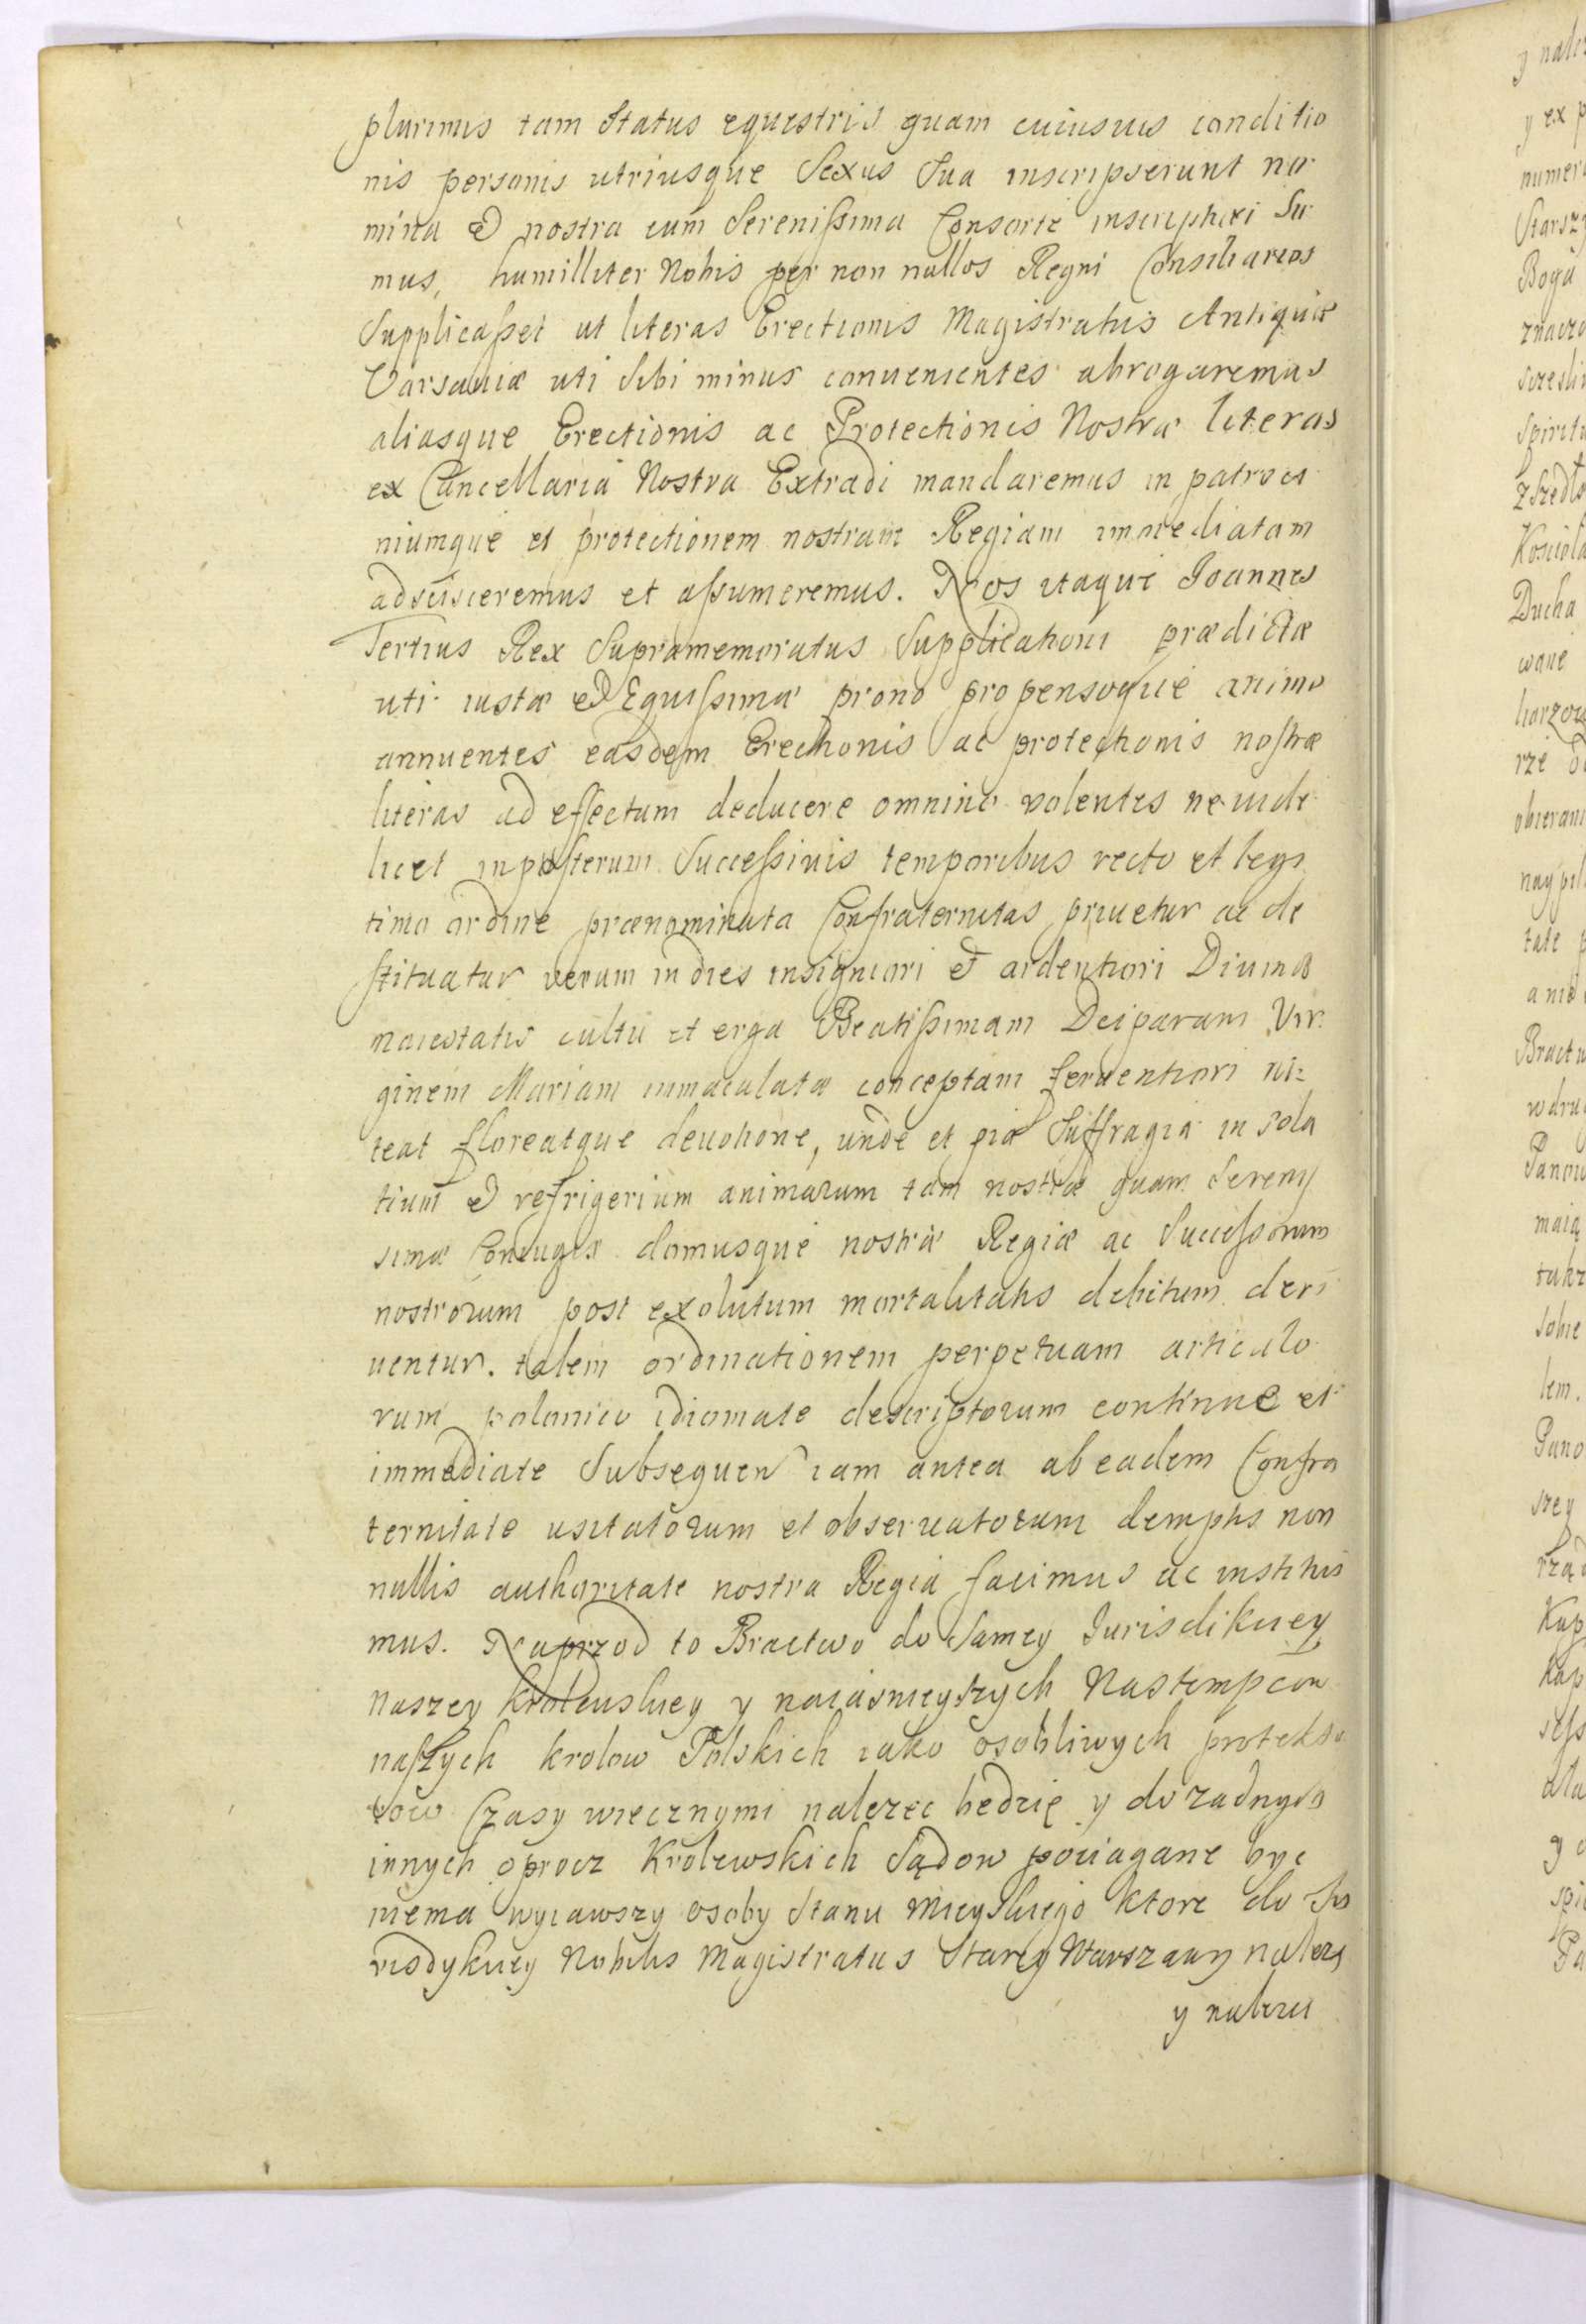 plurimis tam Status equestris quam cuiusuis conditio
nis personis utriusque Sexus Sua inscripserunt no
mina et nostra cum Serenissima Consorte inscripti Su
mus, humilliter Nobis per non nullos Regni Consiliarios
Supplicasset ut literas Erectionis Magistratus Antiquæ
Varsauiæ uti Sibi minus conuenientes abrogaremus
aliasque Erectionis ac Protectionis Nostræ literas
ex Cancellaria Nostra Extradi mandaremus in patroci
niumque et protectionem nostram Regiam immediatam
adscisceremus et assumeremus. Nos itaque Joannes
Tertius Rex Supramemoratus Supplicationi prædictæ
uti iustæ et Equissimæ prono propensoque animo
annuentes easdem Erectionis ac protectionis nostræ
literas ad effectum deducere omnino volentes ne uide
licet inposterum Successiuis temporibus recto et legi
timo ordine prænominata Confraternitas priuetur ac de
stituatur verum in dies insigniori et ardentiori Diuinæ
maiestatis cultu et erga Beatissimam Deiparam Vir
ginem Mariam immaculatæ conceptam feruentiori ni=
teat floreatque deuotione, unde et pia Suffragia in sola
tium et refrigerium animarum tam nostræ quam Serenis
simæ Coniugis domusque nostræ Regiæ ac Successorum
nostrorum post exolutum mortalitatis debitum deri
uentur. talem ordinationem perpetuam articulo
rum polonico idiomate descriptorum continue et
immediate Subsequen iam antea ab eadem Confra
ternitate usitatorum et obseruatorum demptis non
nullis authoritate nostra Regia facimus ac institui
mus. Naprzod to Bractwo do Samey Jurisdikciey
Naszey Krolewskiey y naiasnieyszych Nastempcow
naszych krolow Polskich iako osobliwych protekto
row Czasy wiecznymi nalezec będzie y do zadnych
innych oprocz Krolewskich Sądow pociagane byc
niema wyiawszy osoby Stanu Mieyskiego ktore do Ju
risdykciey Nobilis Magistratus Starey Warszawy nalezą
y nalezec
y nale
y ex p
numer
Starsz
Boga
Spiritu
Kosciola
Ducha
wane
rze
obieran
tate
Bractw
w dru
Panow
maią
lem.
Pano
szey
Kap